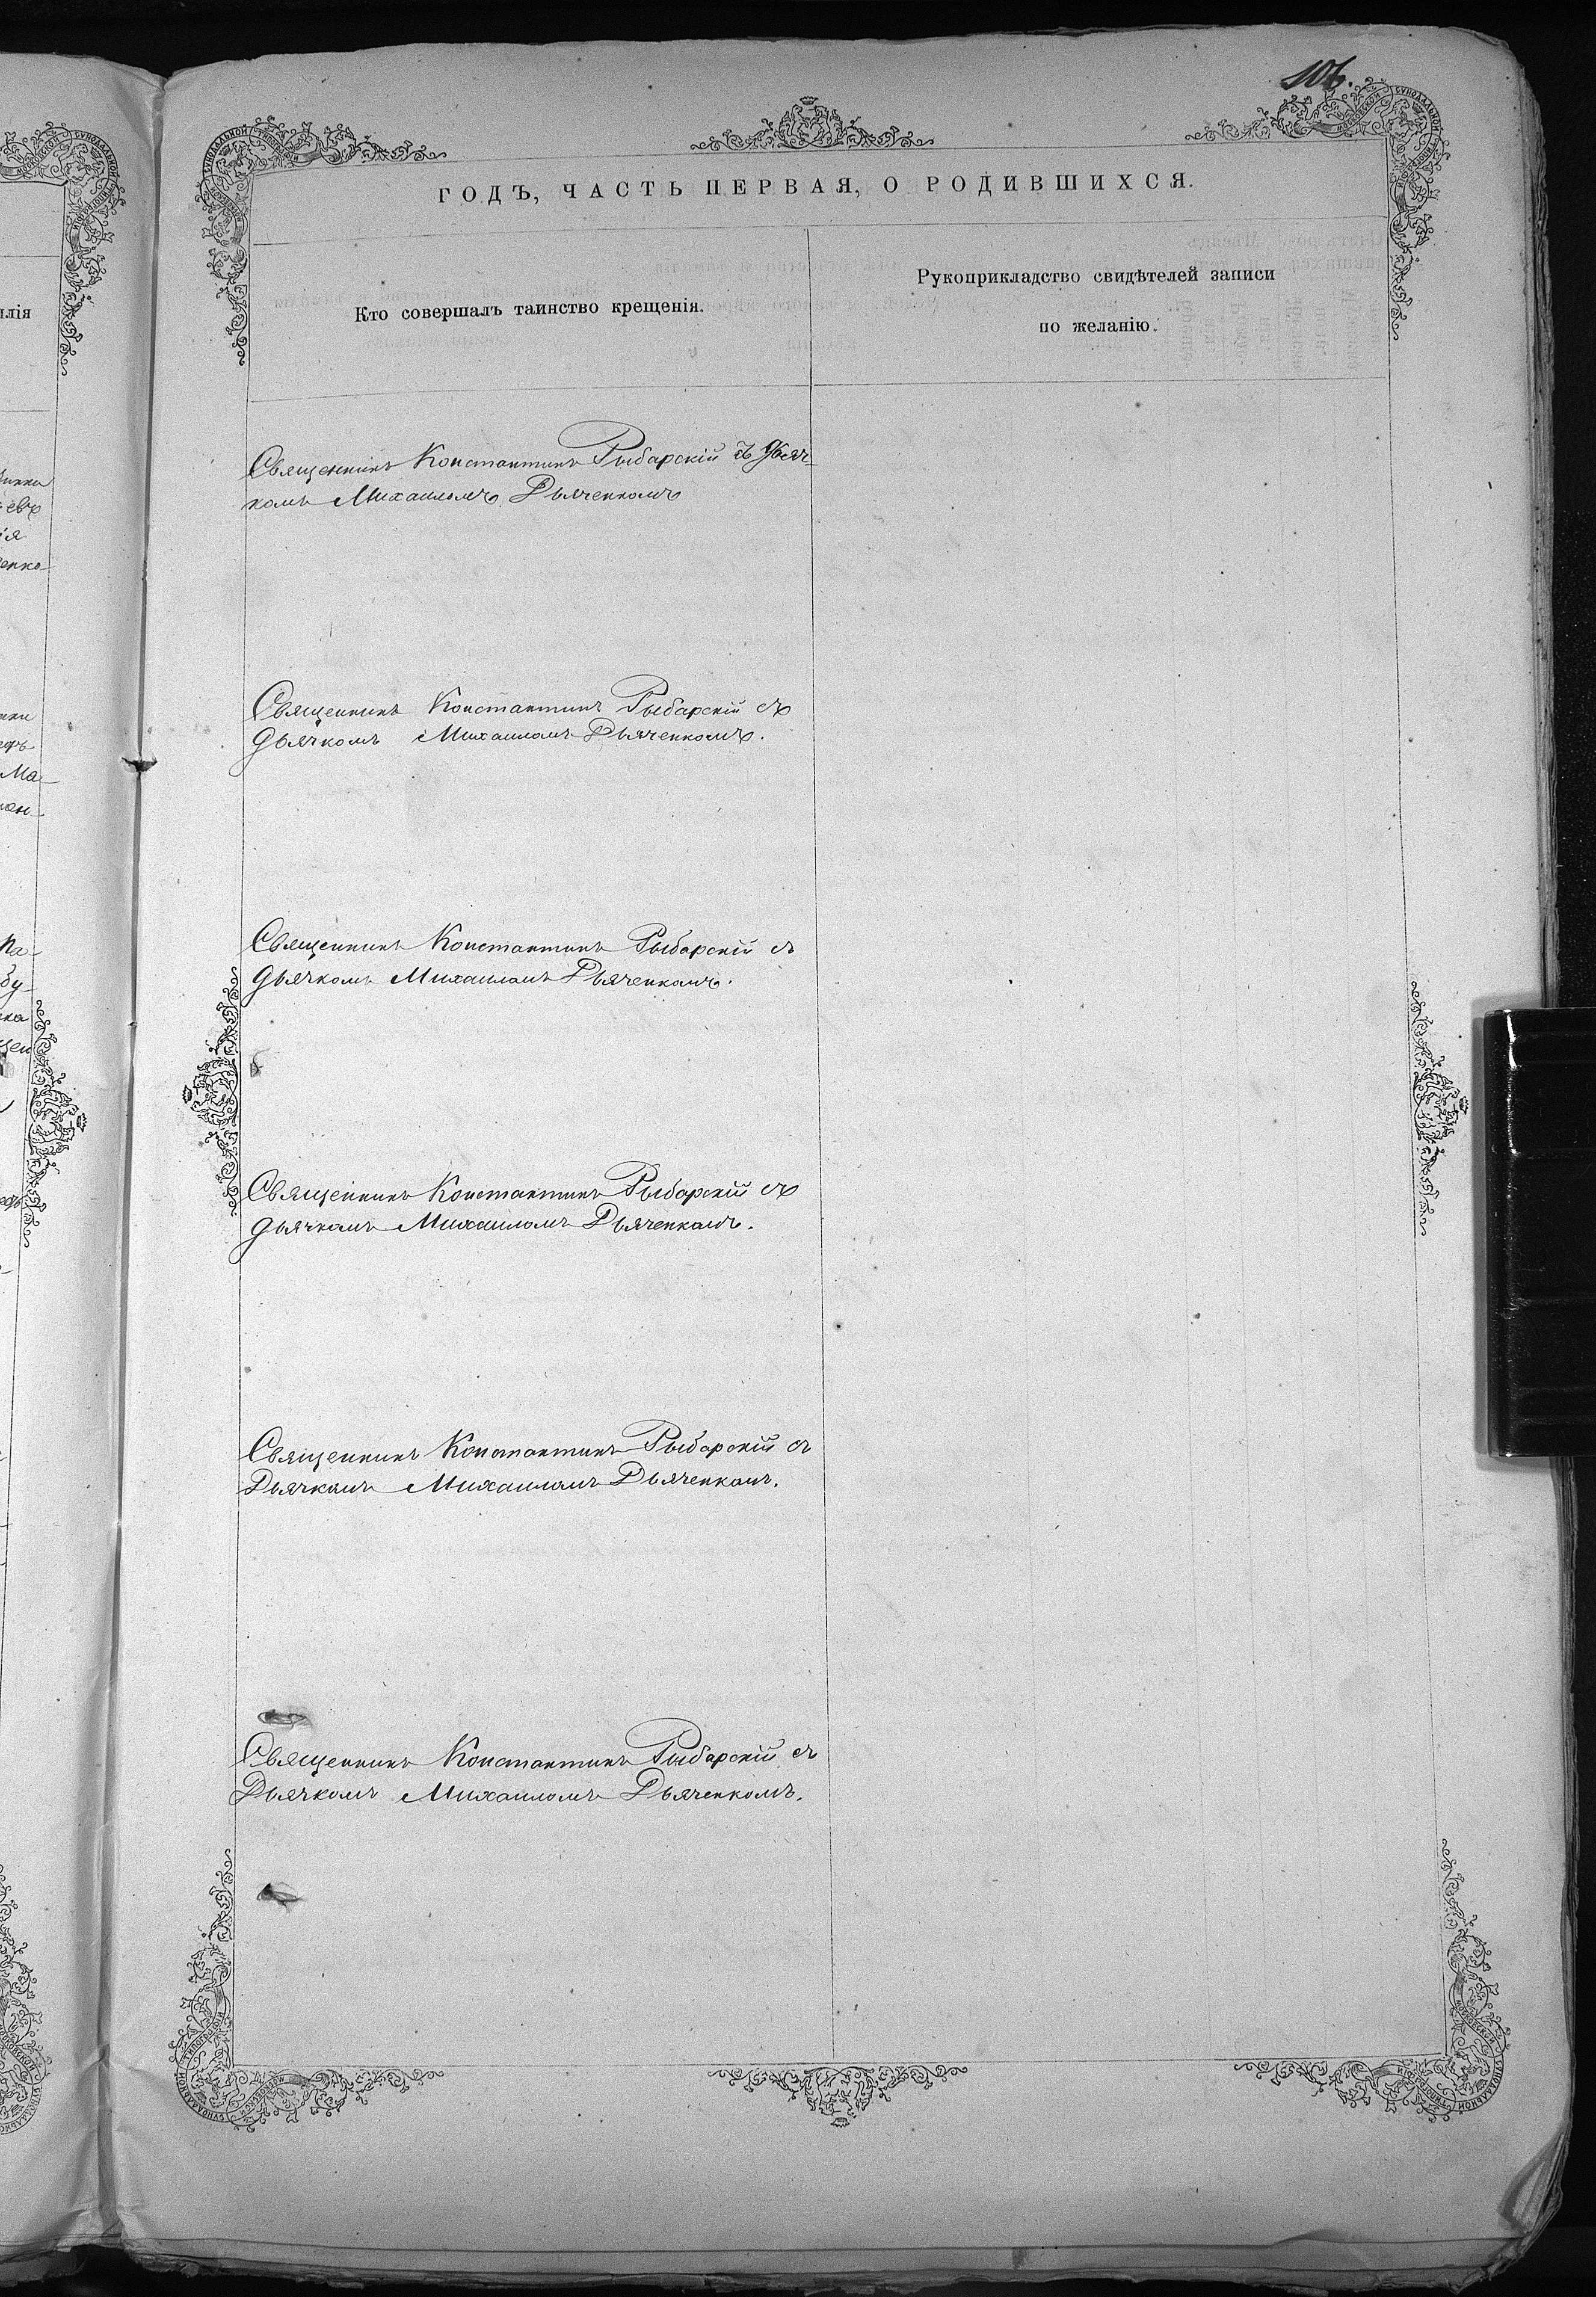 106.
ГОДЪ, ЧАСТЬ ПЕРВАЯ, О РОДИВШИХСЯ.
Кто совершалъ таинство крещенія.
Рукоприкладство свидѣтелей записи
по желанію.
Священникъ Константинъ Рыбарскій съ дьяч-
комъ Михаиломъ Дьяченкомъ
Священникъ Константинъ Рыбарскій съ
дьячкомъ Михаиломъ Дьяченкомъ.
Священникъ Константинъ Рыбарскій съ
дьячкомъ Михаиломъ Дьяченкомъ.
Священникъ Константинъ Рыбарскій съ
дьячкомъ Михаиломъ Дьяченкомъ.
Священникъ Константинъ Рыбарскій съ
Дьячкомъ Михаиломъ Дьяченкомъ.
Священникъ Константинъ Рыбарскій съ
Дьячкомъ Михаиломъ Дьяченкомъ.